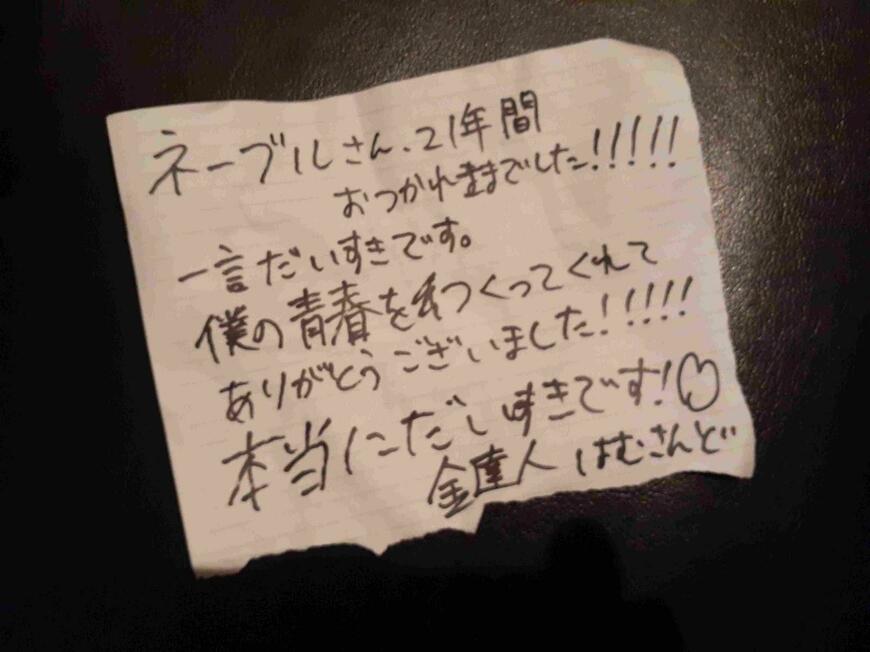 ネーブルさん、21年間
おつかれまでした!!!!!
一言だいすきです。
僕の青春をつくってくれて
ありがとうございました!!!!!
本当にだいすきです!♡
金達人 はむさんど